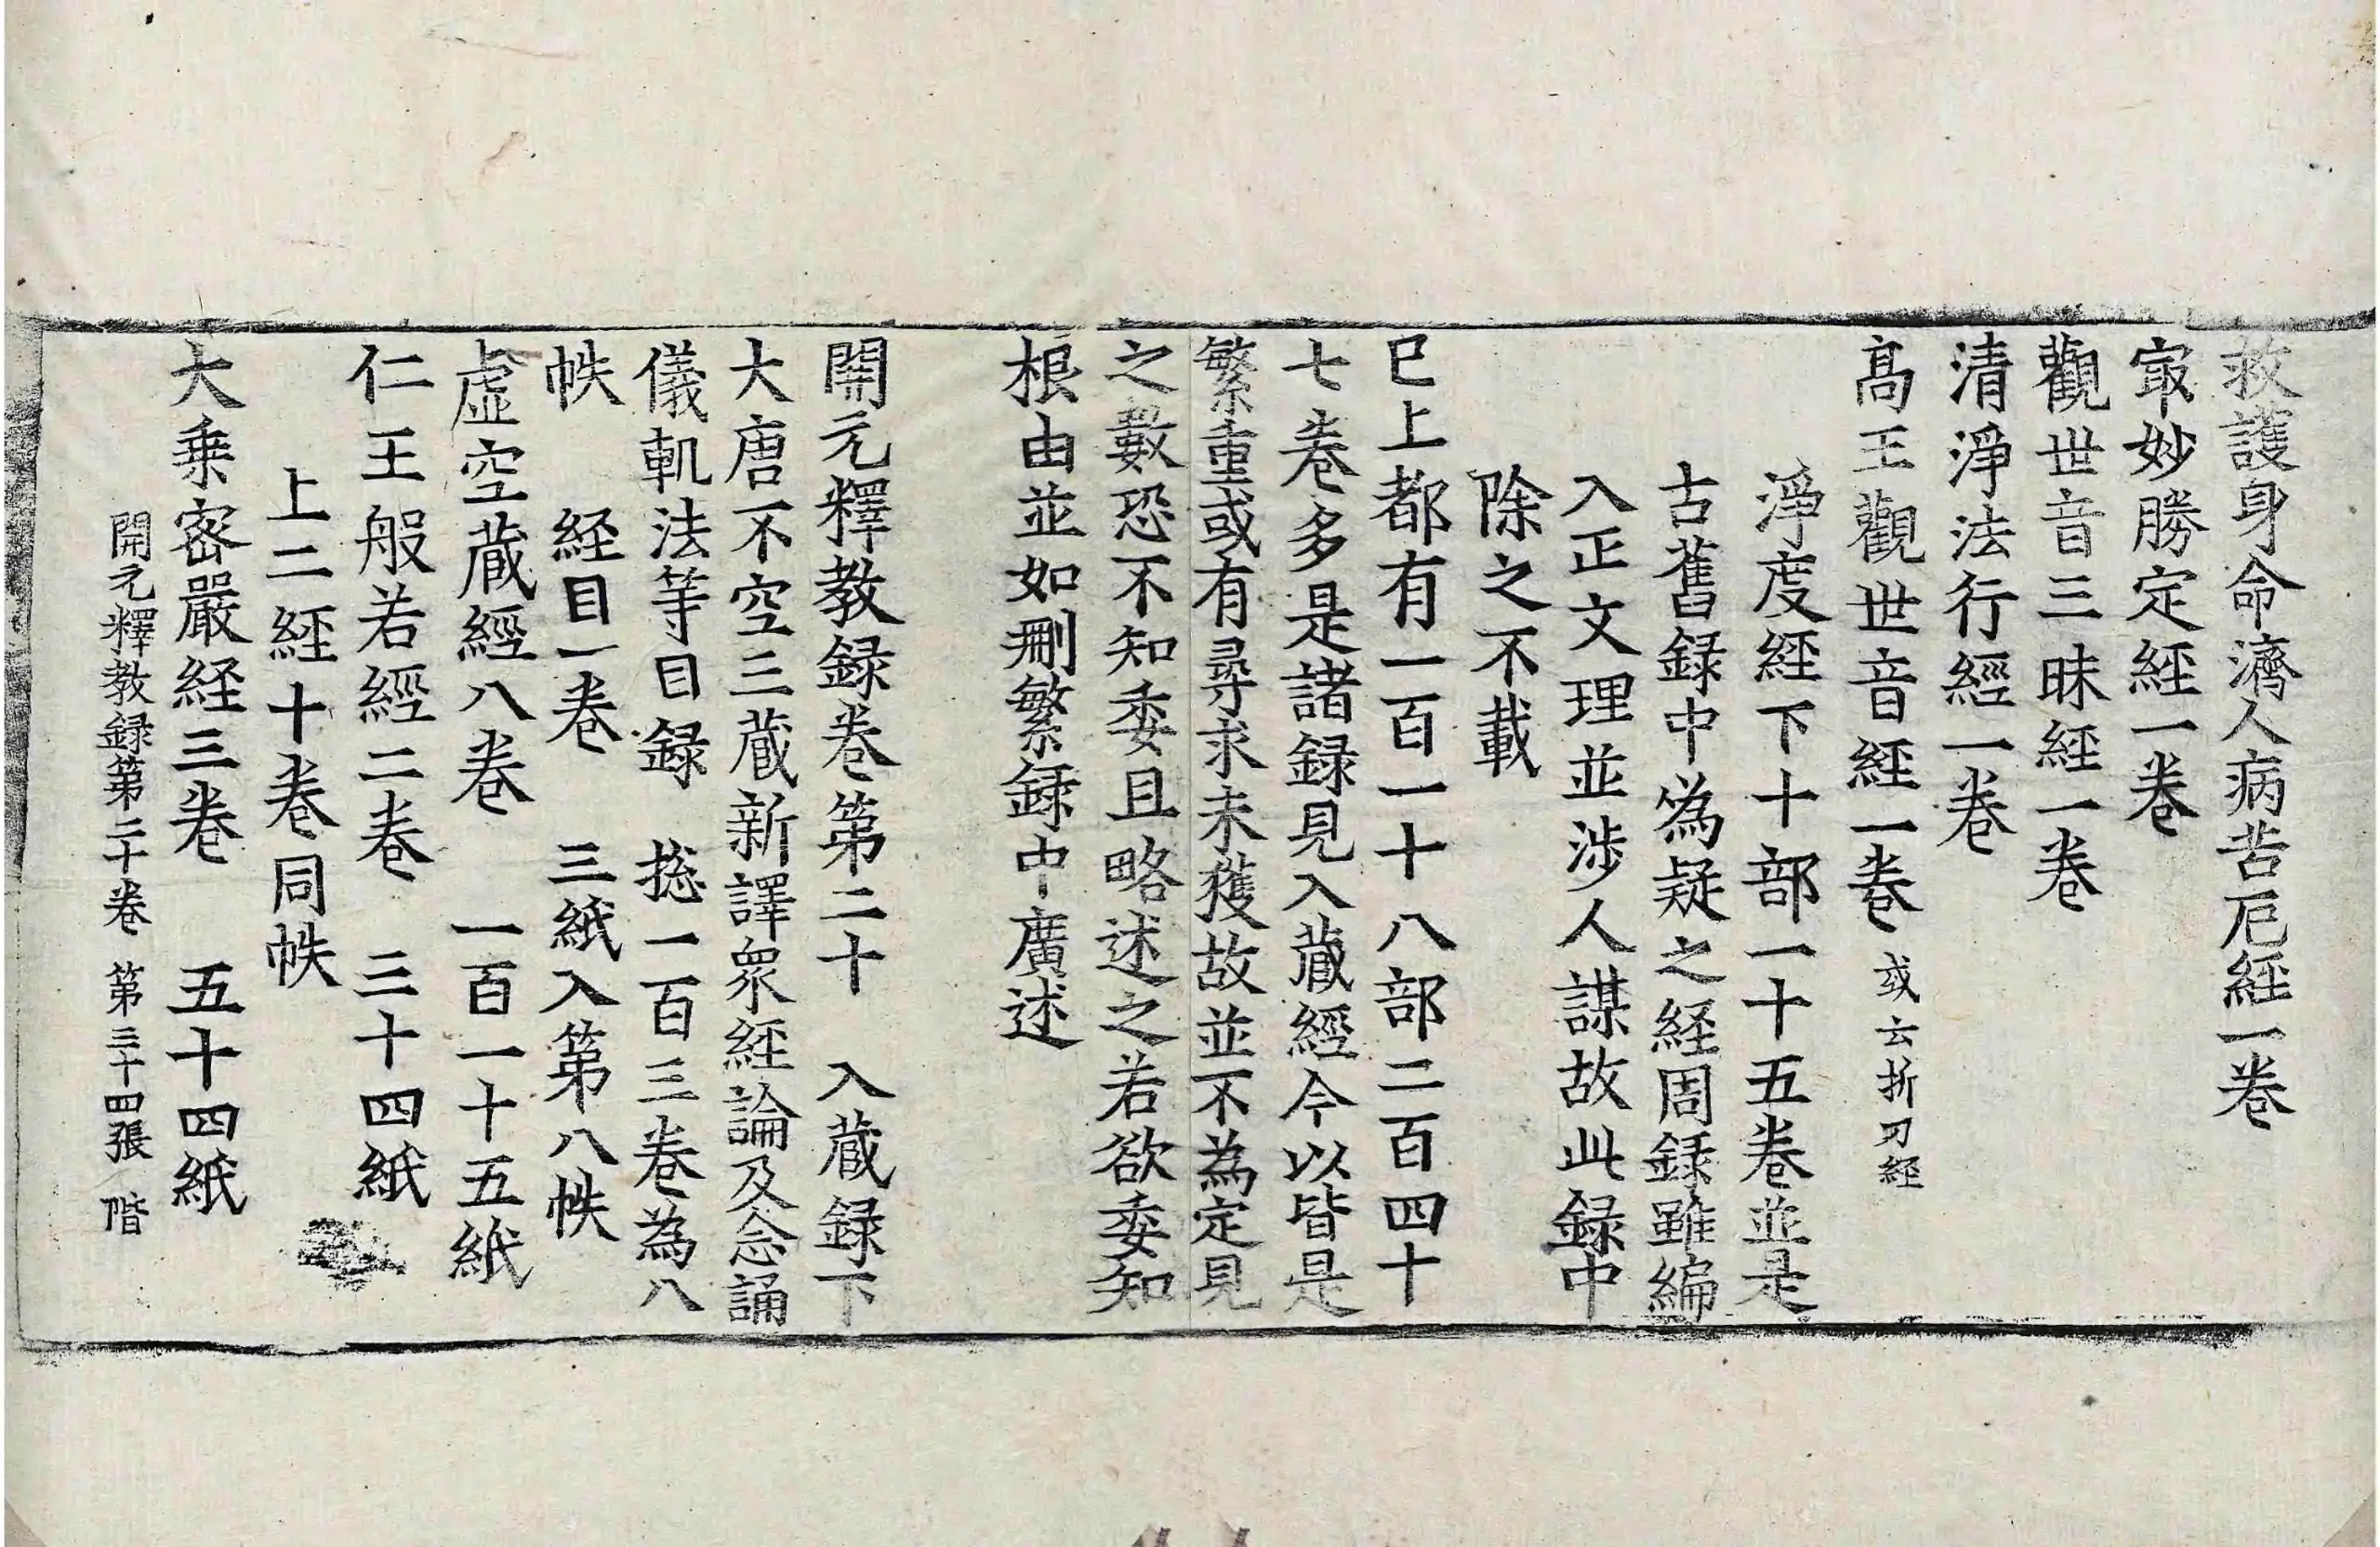 救護身命濟人病苦厄經一卷
㝡妙勝定經一卷
觀世音三昧經一卷
清淨法行經一卷
髙王觀世音經一卷 或云折刀經
淨度経下十部一十五卷並是
古舊録中偽疑之経周録雖編
入正文理並渉人謀故此録中
除之不載
已上都有一百一十八部二百四十
七卷多是諸録見入蔵經今以皆是
繁重或有尋求未獲故並不為定見
之數恐不知委且略述之若欲委知
根由並如刪繁録中廣述
開元釋教録卷第二十 入蔵録下
大唐不空三蔵新譯衆経論及念誦
儀軌法等目録 揔一百三卷為八
帙 経目一卷 三紙入第八帙
虚空蔵經八卷 一百一十五紙
仁王般若經二卷 三十四紙
上二経十卷同帙
大乗密嚴経三卷 五十四紙
開元釋教録第二十卷 第三十四張 階